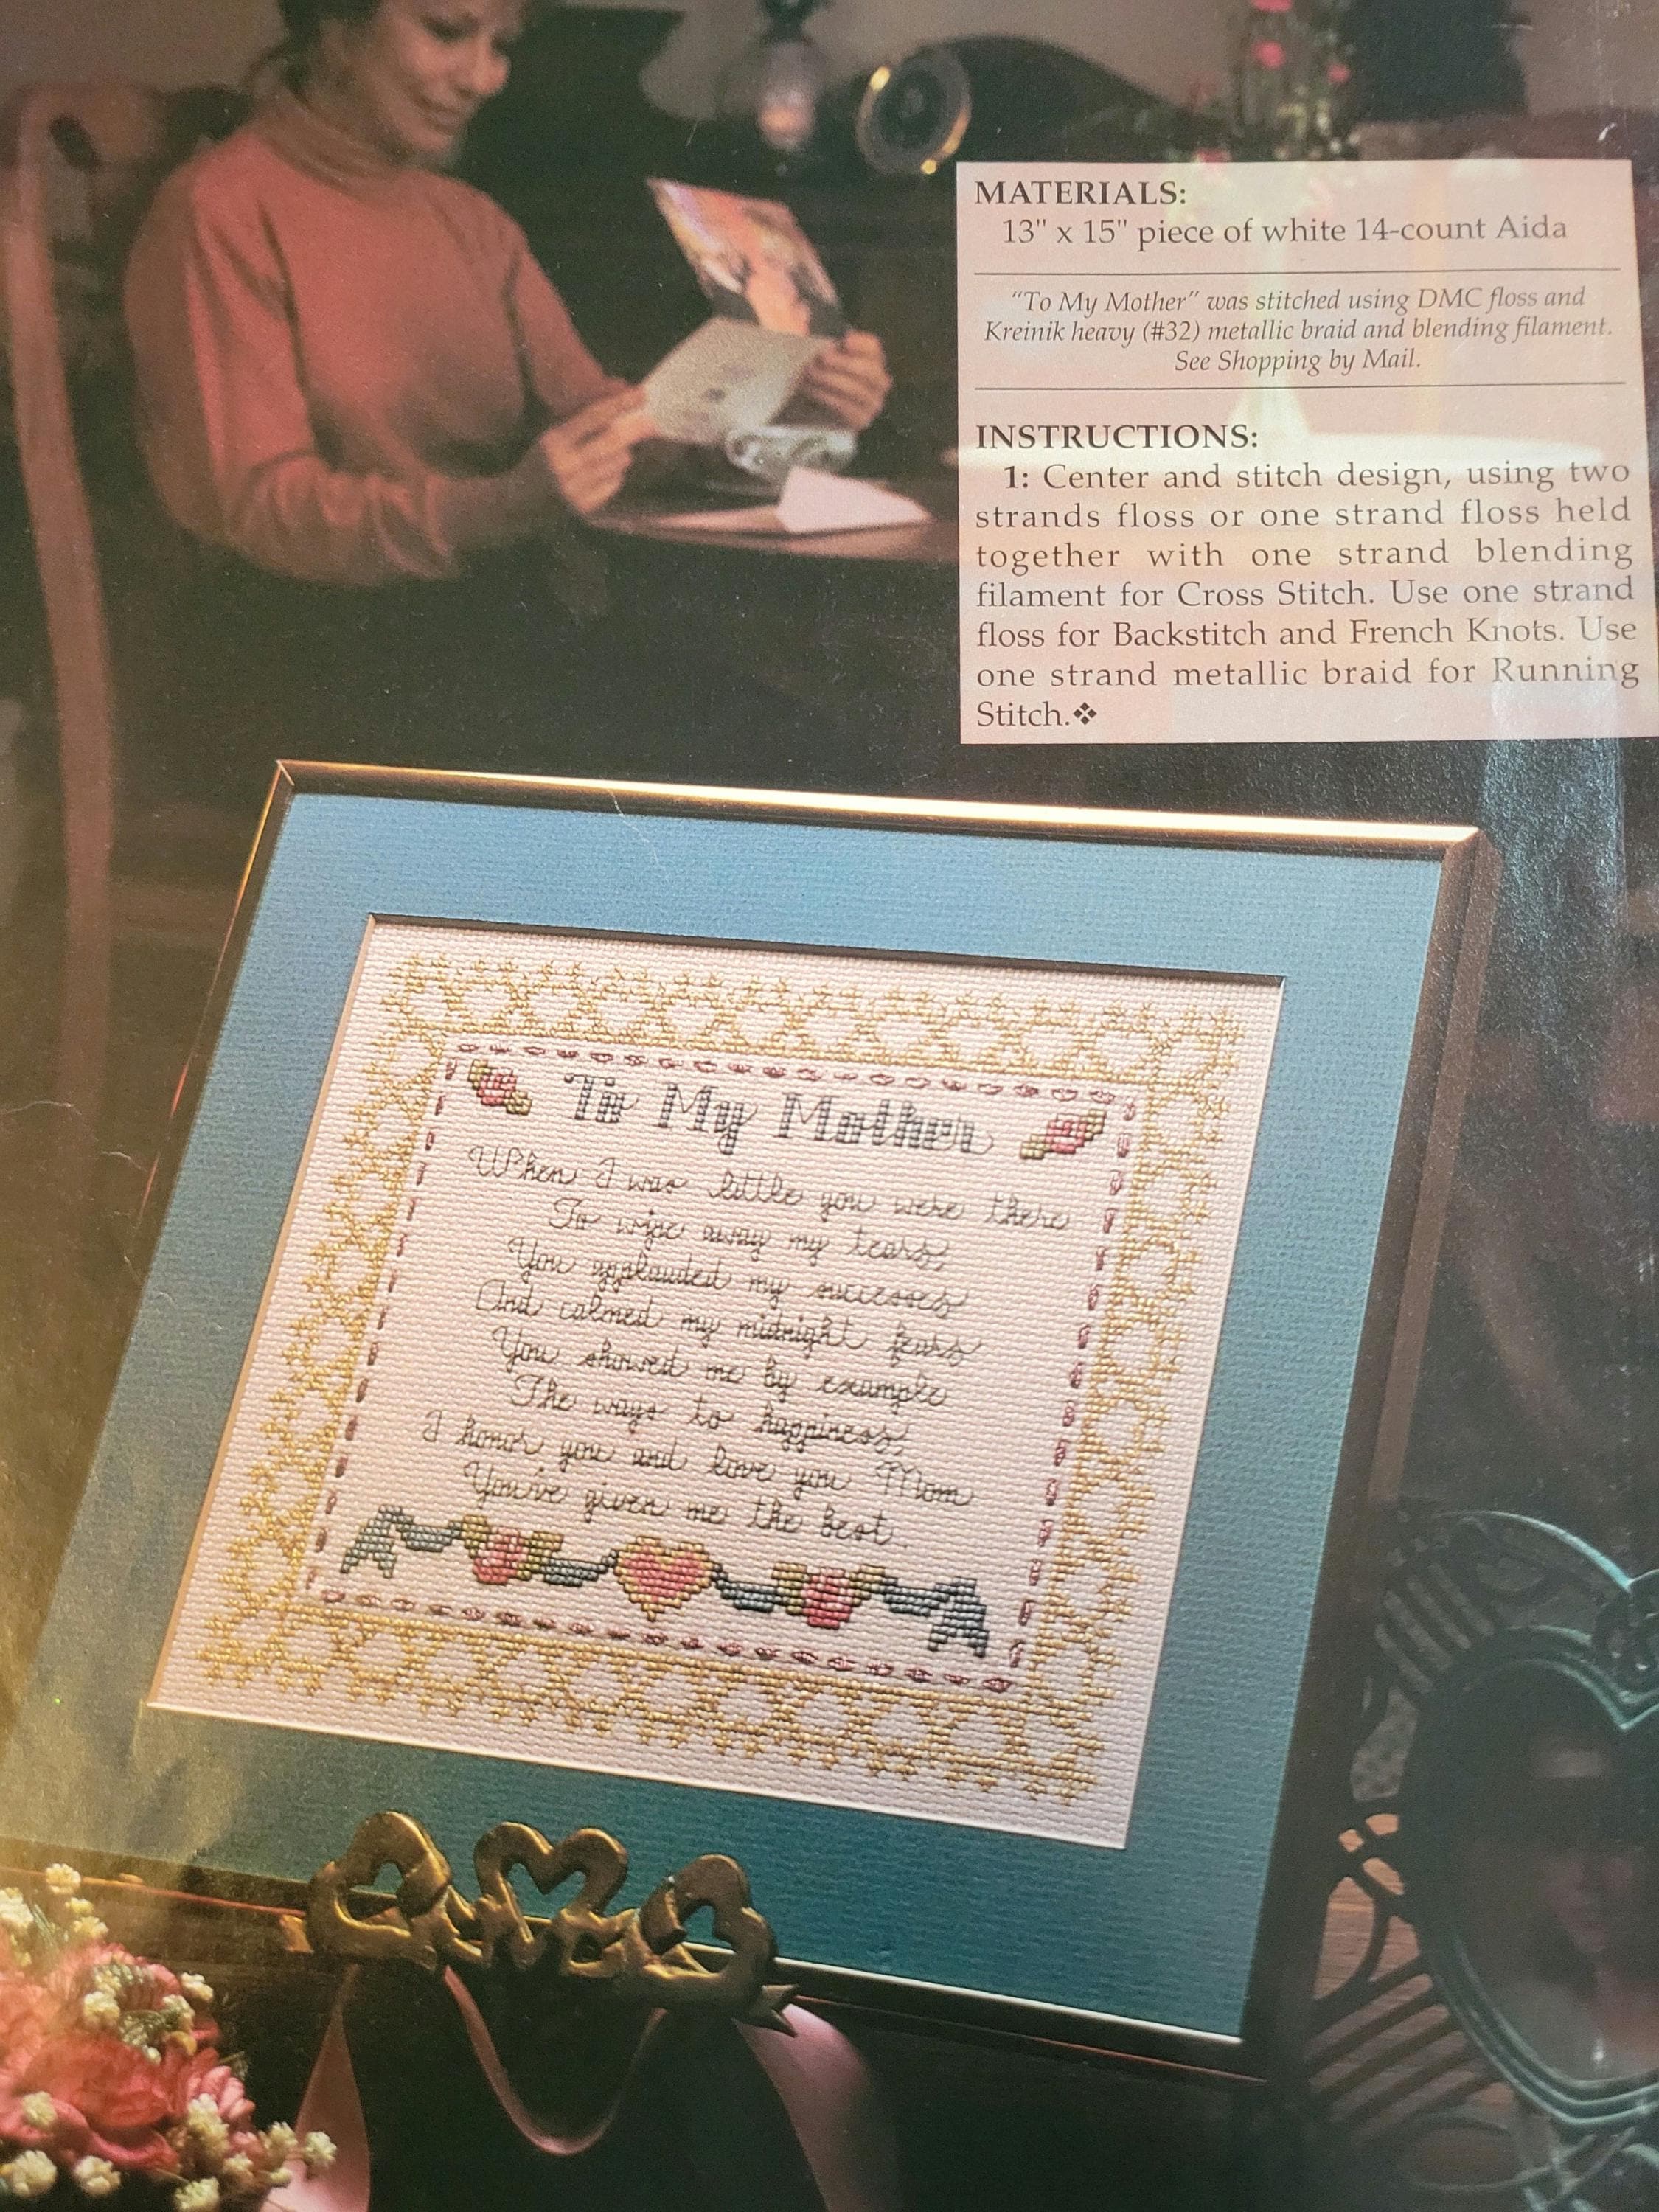 MATERIALS:
13" x 15" piece of white 14-count Aida
“To My Mother” was stitched using DMC floss and
Kreinik heavy (#32) metallic braid and blending filament.
See Shopping by Mail.
INSTRUCTIONS:
1: Center and stitch design, using two
strands floss or one strand floss held
together with one strand blending
filament for Cross Stitch. Use one strand
floss for Backstitch and French Knots. Use
one strand metallic braid for Running
Stitch.❖
To My Mother
When I was little you were there
To wipe away my tears,
You applauded my successes
And calmed my midnight fears
You showed me by example
The ways to happiness,
I honor you and love you Mom
You've given me the best.